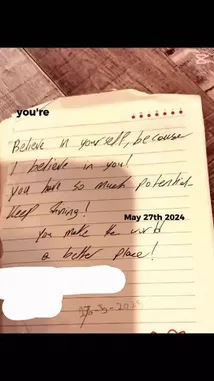 you're
Believe in yourself, because
I believe in you!
you have so much potential
Keep shining!
May 27th 2024
you make the world
a better place!